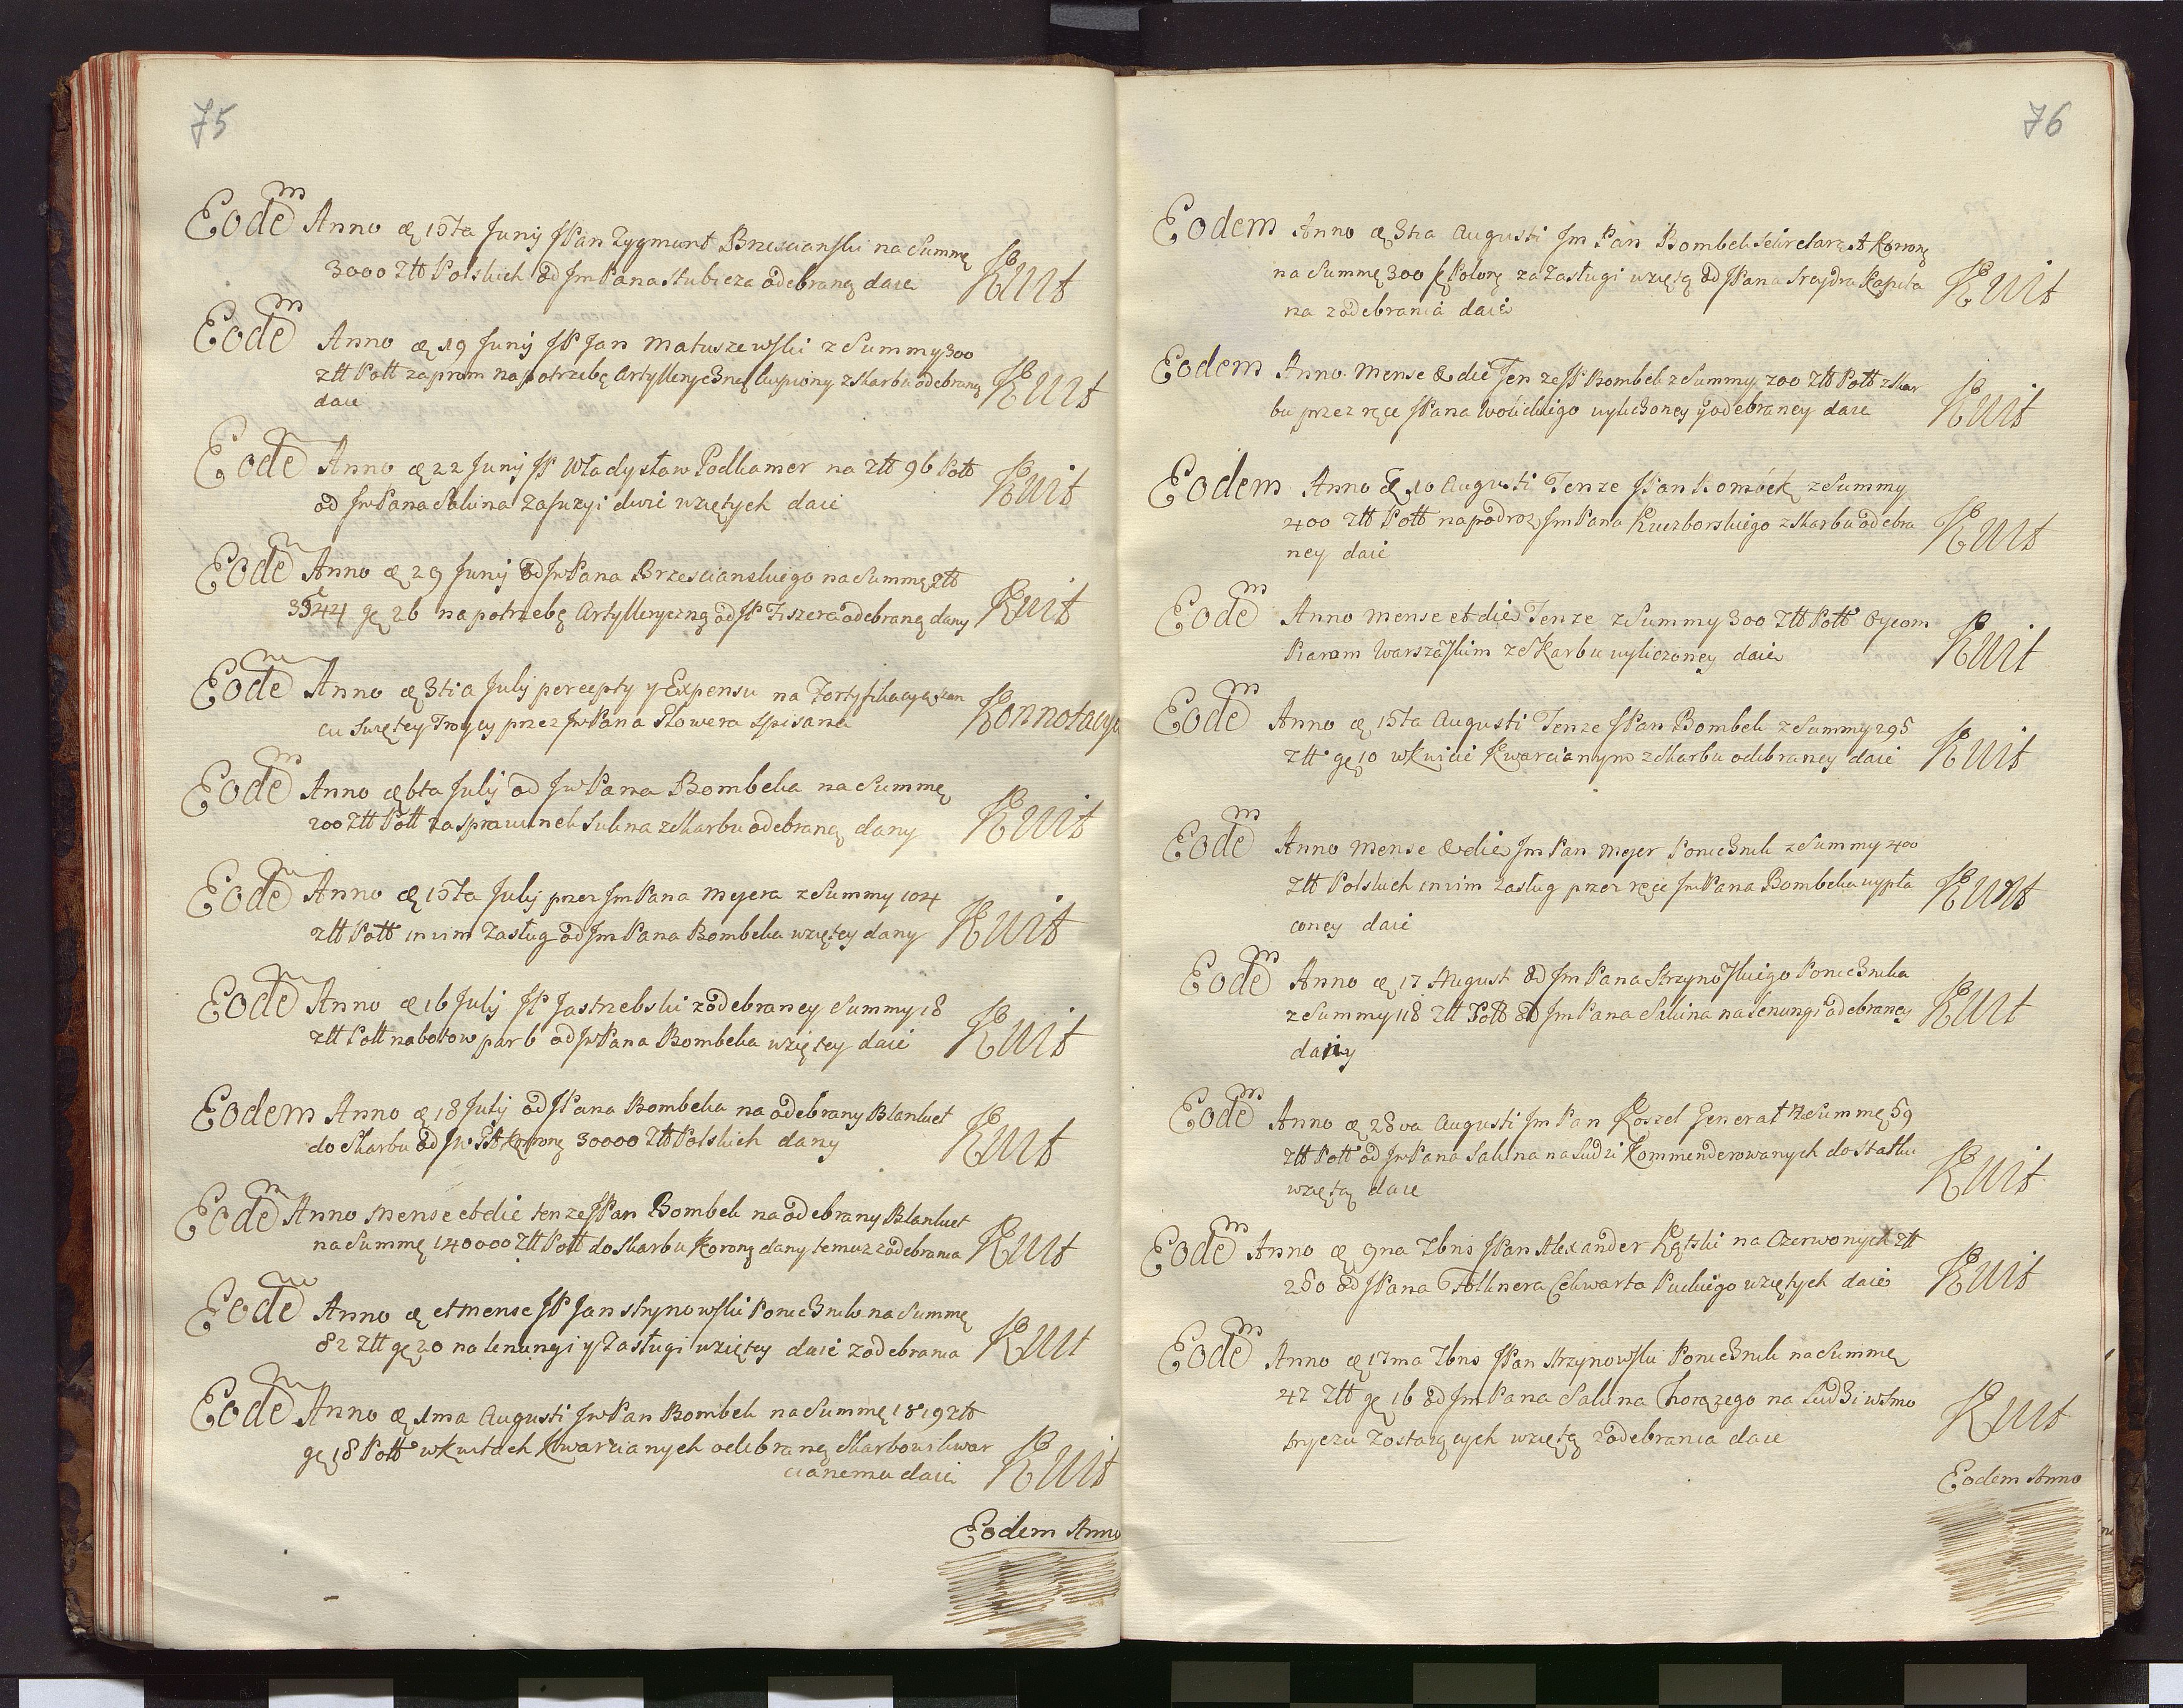 75
Eodem Anno & 15ta Junij JPan Zygmunt Brzescianski na Summę
3000 Ztt Polskich od Jm Pana Stubicza odebraną daie Kwit
Eodem Anno & 19 Junij JP Jan Matuszewski z Summy 300
Ztt Poll za prom na potrzebę Artylleryczną kupiony z Skarbu odebraną Kwit
daie
Eodem Anno & 22 Junij JP Władysław Podkamer na Ztt 96 Poll
od JwPana Salina za fuzyi dwie wziętych daie Kwit
Eodem Anno & 29 Junij od JwPana Brzescianskiego na Summę Ztt
3544 gę 26 na potrzebę Artylleryczną od JP Fiszera odebraną dany Kwit
Eodem Anno & 3tia Julij percepty y Expensu na Fortyfikacyą szan
cu Swiętey Troycy przez JwPana Flowera spisana Konnotacya
Eodem Anno & 6ta Julij od JwPana Bombeka na Summę
200 Ztt Poll za sprawunek sukna z Skarbu odebraną dany Kwit
Eodem Anno & 15ta Julij przez JmPana Meyera z Summy 104
Ztt Poll in vim Zasług od JmPana Bombeka wziętey dany Kwit
Eodem Anno & 16 Julij JP Jastrzebski z odebraney Summy 18
Ztt Poll na botow par 6 od JwPana Bombeka wziętey daie Kwit
Eodem Anno & 18 Julij od JPana Bombeka na odebrany Blankiet
do Skarbu od Jw Koronę 30000 Ztt Polskich dany Kwit
Eodem Anno Mense et die tenze JPan Bombek na odebrany Blankiet
na Summę 140000 Ztt Poll do Skarbu Koronę dany temuz z odebrania Kwit
Eodem Anno & et mense JP Jan Strynowski Porucznik na Summę
82 Ztt gę 20 na lenungi y Zasługi wziętey daie z odebrania Kwit
Eodem Anno & 1ma Augusti JwPan Bombek na Summę 1819 Ztt
gę 18 Poll w kwitach Kwarcianych odebraną Skarbowi kwar
cianemu daie Kwit
Eodem Anno
76
Eodem Anno & 3tia Augusti Jm Pan Bombek Sekretarz A Koronę
na Summę 300 Polonę za Zasługi wziętą od JPana Srajdra Kapita
na z odebrania daie Kwit
Eodem Anno Mense & die Ten ze JP Bombek z Summy 200 Ztt Poll z Skar
bu przez ręce JPana Wolickiego wyliczoney y odebraney daie Kwit
Eodem Anno & 10 Augusti Tenze JPan Bombek z Summy
400 Ztt Poll na podroz JmPana Kruezborskiego z Skarbu odebra
ney daie Kwit
Eodem Anno Mense et die Tenze z Summy 300 Ztt Poll Oycom
Piarom Warszawskim z Skarbu wyliczoney daie Kwit
Eodem Anno & 15ta Augusti Tenze JPan Bombek z Summy 295
Ztt gę 10 w kwicie Kwarcianym z Skarbu odebraney daie Kwit
Eodem Anno Mense & die Jm Pan Mejer Porucznik z Summy 400
Ztt Polskich in vim zasług przez ręce JmPana Bombeka wypła
coney daie Kwit
Eodem Anno & 17 August od JmPana Strzynowskiego Porucznika
z Summy 118 Ztt Poll od JmPana Salina na lenungi odebraney Kwit
dany
Eodem Anno & 28va Augusti Jm Pan Koszel Generał na Summę 59
Ztt Poll od JwPana Salina na ludzi Kommenderowanych do statku
wziętą daie Kwit
Eodem Anno & 9na 7bris JPan Alexander Kątski na Czerwonych Ztt
250 od JPana Follnera Cekwarta Puckiego wziętych daie Kwit
Eodem Anno & 17ma 7bris JPan Strzynowski Porucznik na Summę
47 Ztt gę 16 od JmPana Salina Chorązego na ludzi w Smo
tryczu zostaiących wziętą z odebrania daie Kwit
Eodem Anno